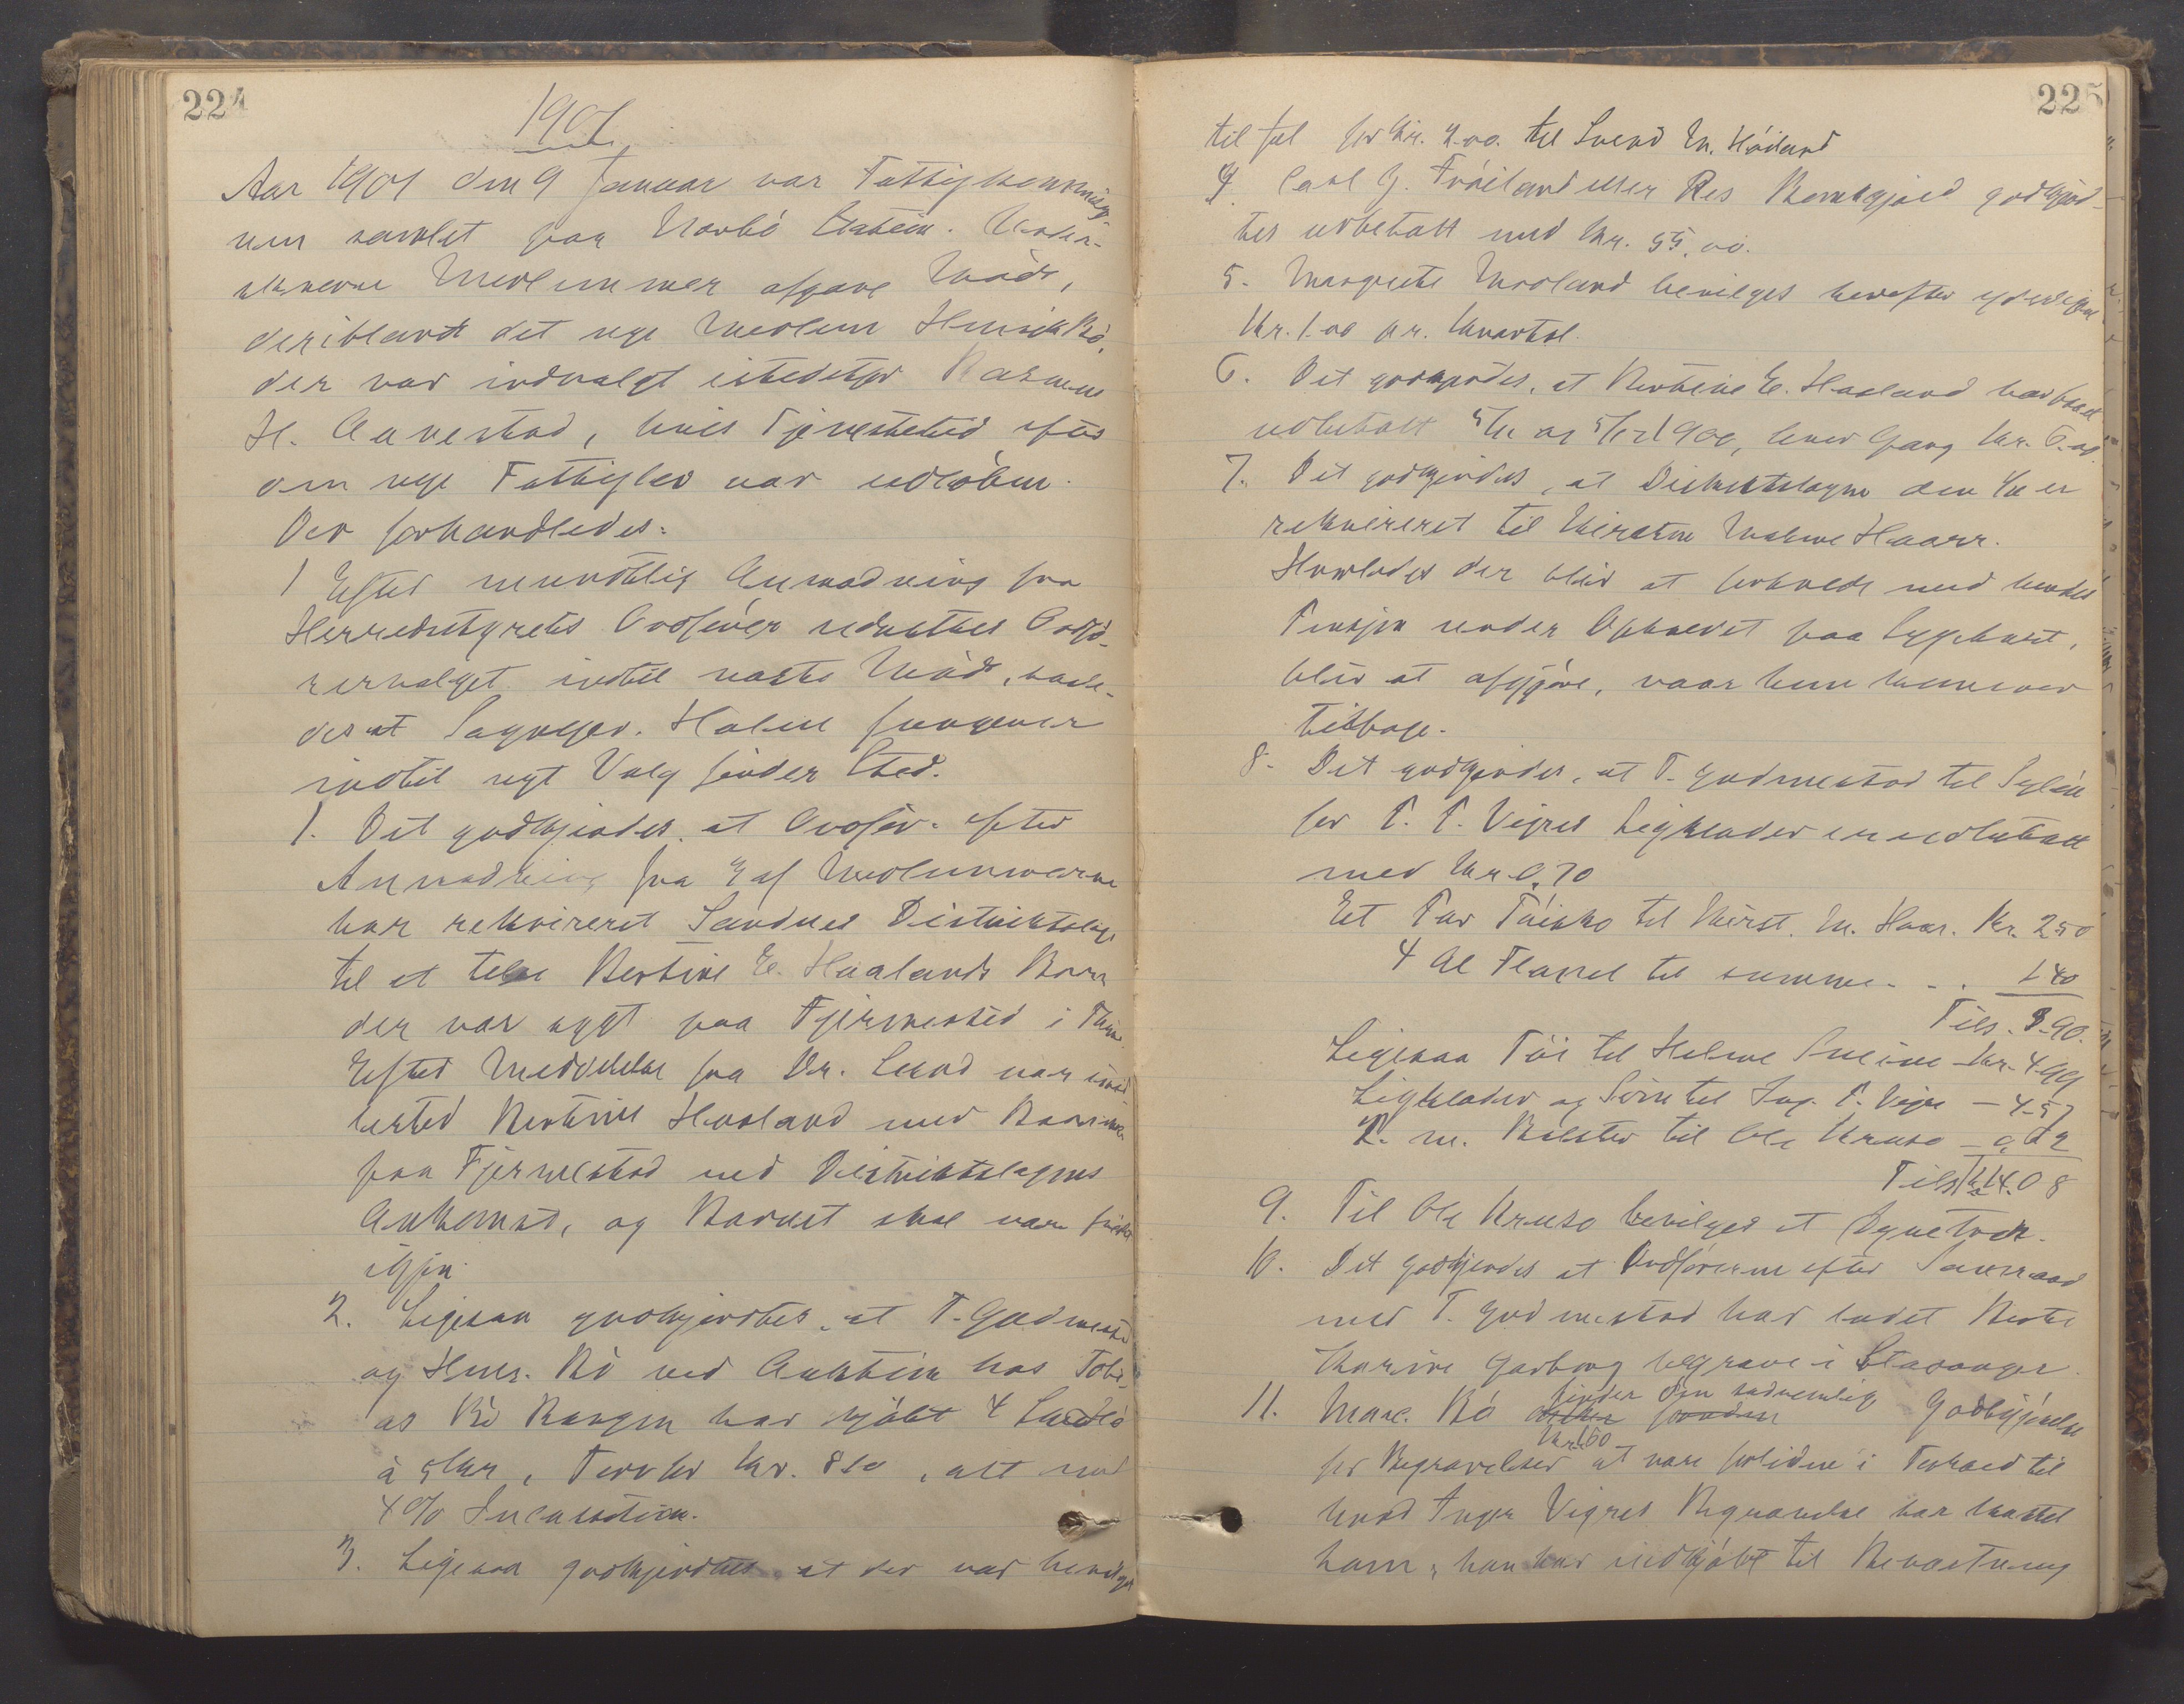 224
1901
Aar 1901 den 9 Januar var Fattigkommisjo-
nen samlet paa Narbö Station. Under-
skrevne Medlemmer afgave Möde,
deriblandt det nye Medlem Henrik Bö,
der var indvalgt istedetfor Rasmus
H. Auestad, hvis Tjenestetid efter
den nye Fattiglov var udlöben.
Der forhandledes:
1 Efter mundtlig Anmodning fra
Herredstyrets Ordförer udsattes Ordfö-
rervalget indtil næste Möde, saale-
des at Sogneprn. Holm fungerer
indtil nyt Valg finder Sted.
1. Det godkjendes, at Ordför. efter
Anmodning fra 2 af Medlemmerne
har rekvireret Sandnes Distriktslæge
til et telse Bertine E. Haalands Barn
der var sygt paa Fjermestad i Thime.
Efter Meddelelse fra Dr. Lund var imid-
lertid Bertine Haaland med Barnet ikke
paa Fjermestad ved Distriktslægens
Ankomst, og Barnet skal være friskt
igjen.
2. Ligesaa godkjendtes, at T. Gudmestad
og Henr. Bö ved Auktion hos Tobi-
as Bö Haugen har kjöbt 4 Læs Hö
à 5 Kr, Torv for Kr. 8.10, alt med
4 % Incassation.
3. Ligesaa godkjendtes at der var bevilget
225
til Jul for Kr. 4.00. til Svend M. Höiland
4. Carl G. Fröiland eller Res Bomkgjæld godkjend-
tes udbetalt med Kr. 55,00.
5. Margrete Motland bevilges herefter yderligere
Kr. 1.00 pr. Kvartal.
6. Det godkjendes, at Bertine E. Haaland har faaet
udbetalt 5/11 og 5/12 1900, hver Gang Kr. 6.00.
7. Det godkjendes, at Distriktslægen den er
rekvireret til Kirsten Malene Haarr.
Hvorledes der blir at forholde med hendes
Pensjon under Opholdet paa Sygehuset,
blir at afgjöre, naar hun kommer
tilbage.
8. Det godkjendes, at T. Gudmestad til Sylön
for T. T. Vigres Ligklæder er udbetalt
med Kr 0,70
Et Par Töisko til Kirst. M. Haar. Kr. 2 50
4 Al Flanel til samme . . . 1 40
Tils. 3.90.
Ligesaa Töi til Helene Kr. 4.99
Ligklæder og Söm til Ing. T. Vigre — 4.57
R. m. Bolster til Ole Kruse — 0,62
Tils Kr 14.08
9. Til Ole Kruse bevilges et Dynetræk.
10. Det godkjendes at Ordföreren efter Samraad
med T. Gudmestad har ladet Berte
Karine Garborg begrave i Stavanger.
11. Marc. Bö finder den sædvanlig Godtgjörelse
Kr. 160
for Begravelser at være forliden i Forhold til
hvad Inger Vigres Begravelse har kostet
ham, han har indkjöbt til Beværtning